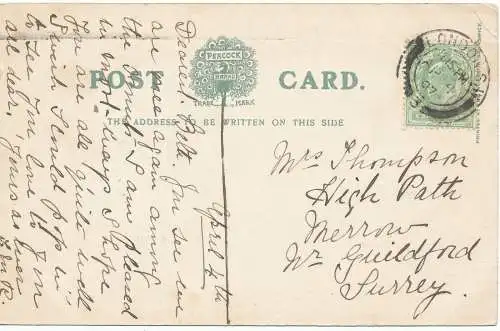 POST CARD.
PEACOCK
BRAND
TRADE MARK
THE ADDRESS TO BE WRITTEN ON THIS SIDE
LONDON
April 4th
Dearest Patt. You see we
are once again among
the Smuts I am pleased
in most ways I hope
You are all quite well
I wish I could pop in
to see You love to You
all dear, Yours as ever
Mrs Thompson
High Path
Merrow
Nr Guildford
Surrey.